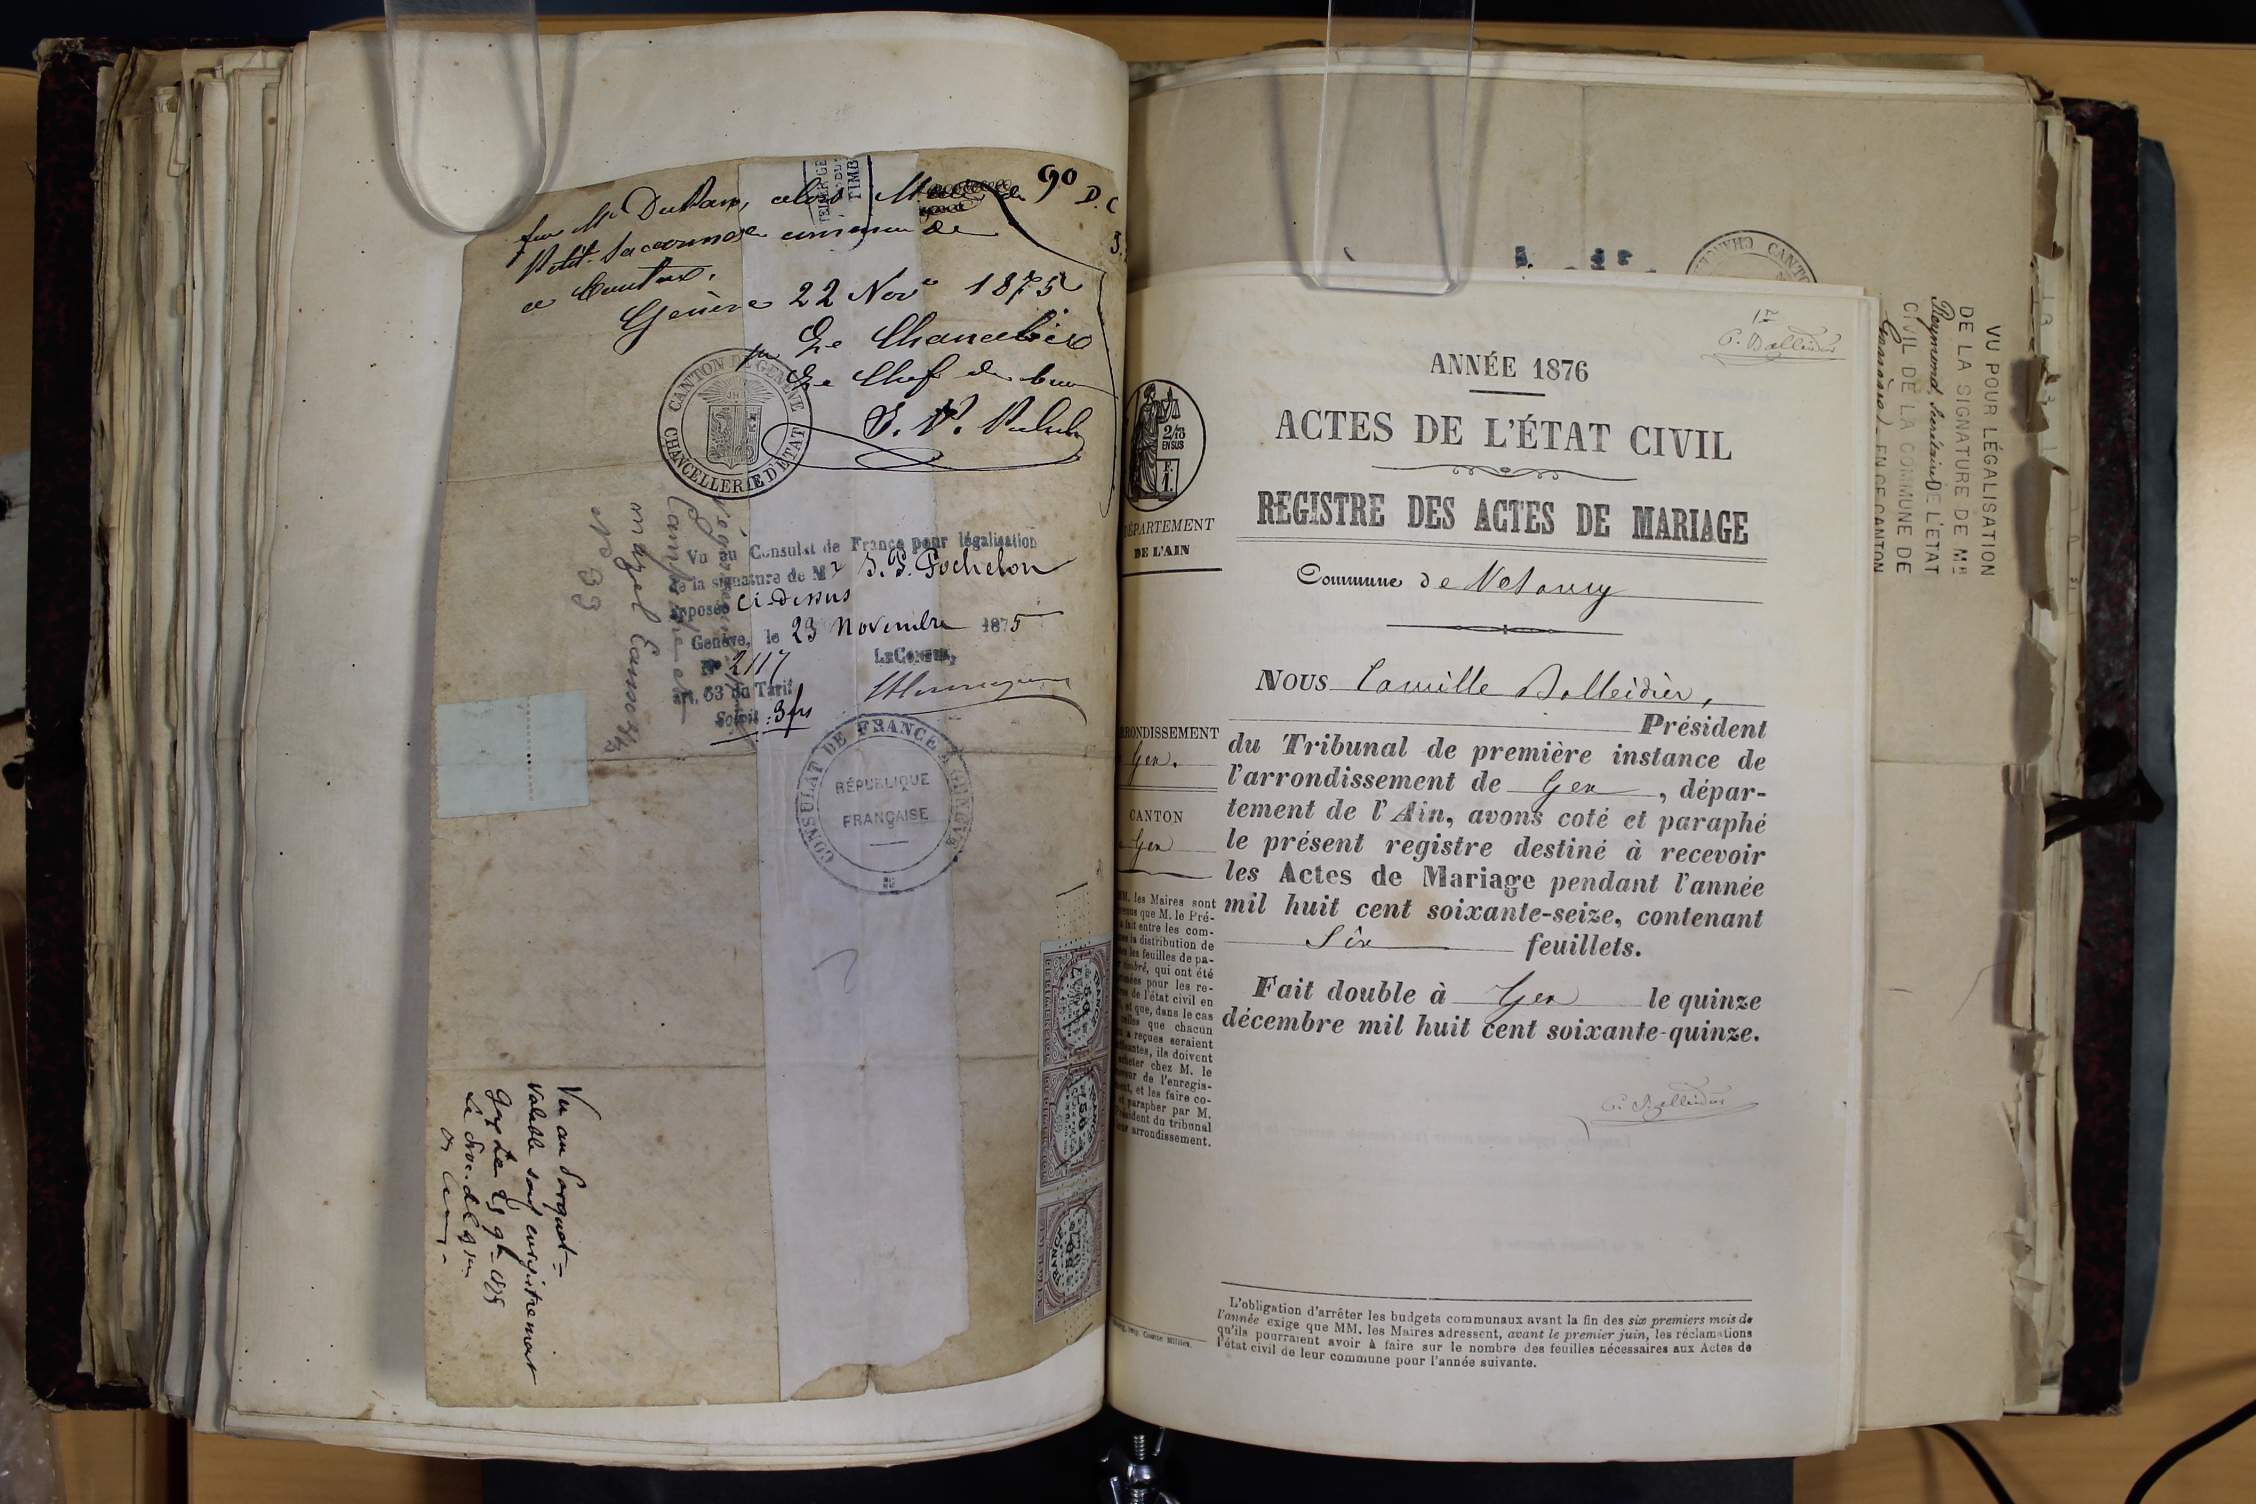 90
D. C
TIMBRE
Petit Saconnex
Genève 22 Nov. 1875
Le Chancelier
Le Chef du
CANTON DE GENÈVE
CHANCELLERIE D'ETAT
Vu au Consulat de France pour légalisation
de la signature de Mr J. P. Pochelon
apposée ci-dessus
Genève, le 23 Novembre 1875
No 2117
Le Consul,
Art. 63 du Tarif
Soit : 3 frs
CONSULAT DE FRANCE À GENÈVE
RÉPUBLIQUE
FRANÇAISE
No 33
Vu au Parquet
valable sauf enregistrement
Gex Le
1re
C. Bolleidier
ANNÉE 1876
ACTES DE L'ÉTAT CIVIL
REGISTRE DES ACTES DE MARIAGE
Commune de Vesancy
NOUS Camille Bolleidier,
Président
du Tribunal de première instance de
l'arrondissement de Gex, dépar-
tement de l'Ain, avons coté et paraphé
le présent registre destiné à recevoir
les Actes de Mariage pendant l'année
mil huit cent soixante-seize, contenant
Six feuillets.
Fait double à Gex le quinze
décembre mil huit cent soixante-quinze.
C. Bolleidier
L'obligation d'arrêter les budgets communaux avant la fin des six premiers mois de
l'année exige que MM. les Maires adressent, avant le premier juin, les réclamations
qu'ils pourraient avoir à faire sur le nombre des feuilles nécessaires aux Actes de
l'état civil de leur commune pour l'année suivante.
2/10
EN SUS
F.
1.
DÉPARTEMENT
DE L'AIN
ARRONDISSEMENT
Gex.
CANTON
Gex
MM. les Maires sont
que M. le Pré-
fait entre les com-
la distribution de
les feuilles de pa-
timbré, qui ont été
pour les re-
de l'état civil en
et que, dans le cas
celles que chacun
a reçues seraient
ils doivent
acheter chez M. le
de l'enregis-
et les faire co-
parapher par M.
Président du tribunal
arrondissement.
VU POUR LÉGALISATION
DE LA SIGNATURE DE MR
Reymond, Secrétaire DE L'ÉTAT
CIVIL DE LA COMMUNE DE
EN CE CANTON